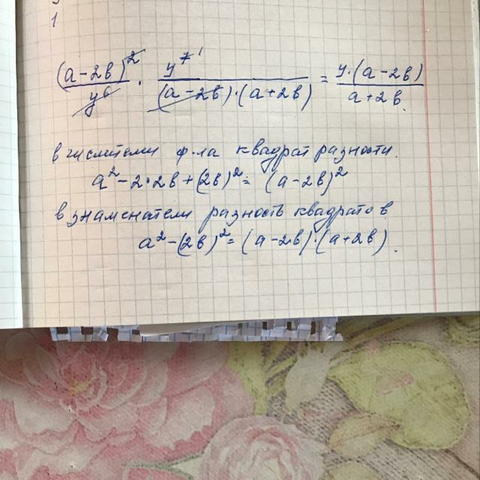 1
(a-2в)² / y⁶ · y⁷ ¹ / (a-2в)·(a+2в) = y·(a-2в) / a+2в.
в числители ф-ла квадрат разности.
a²-2·2в+(2в)²= (a-2в)²
в знаменатели разность квадратов
a²-(2в)²=(a-2в)·(a+2в).